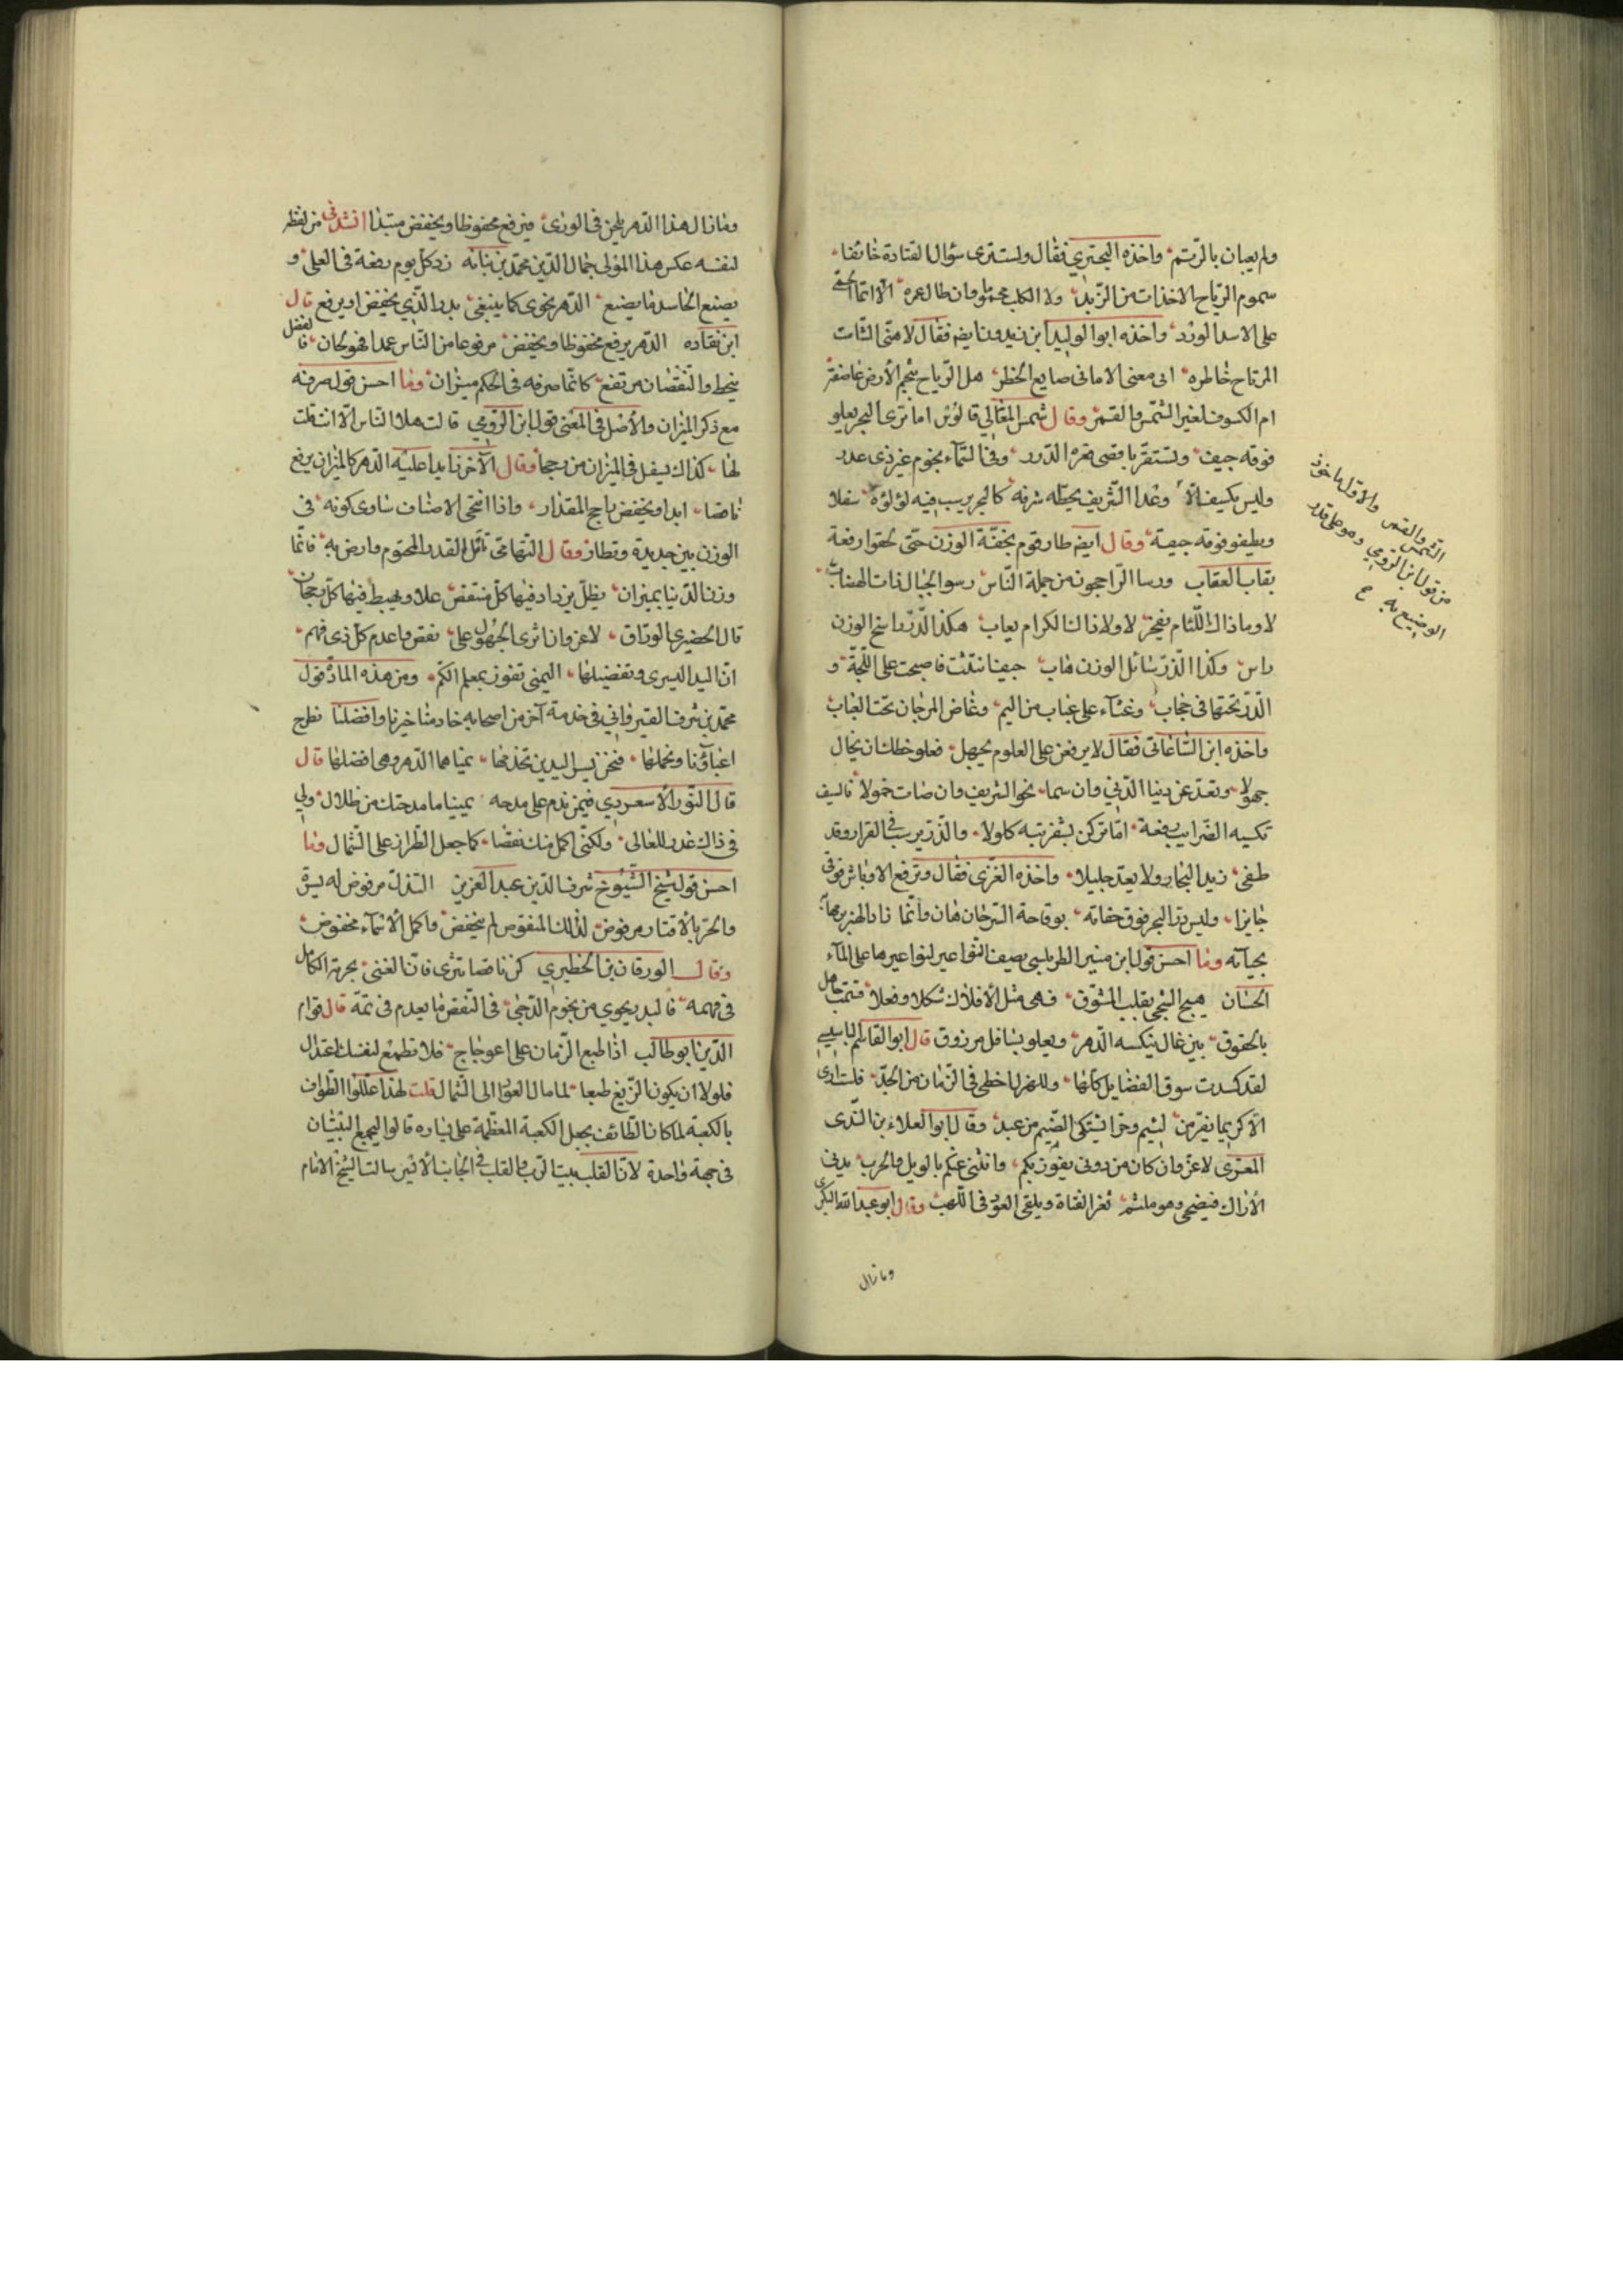 ولم يعبان بالرتم واخذه البحتري فقال ولست ترى سؤال القتادة خائفا
سموم الرياح الاخذات من الرند ولا الكلب محموما وان طال عمره الا انما الحمى
على الاسد الورد واخذه ابو الوليد ابن زيدون ايضم فقال لا متى الشامت
المرتاح خاطره انى معنى الامانى ضايع الخطر هل الرياح بنجم الأرض عاصفة
ام الكسوف لغير الشمس والقمر وقال شمس المعالي قابوس اما ترى البحر يعلو
فوقه جيف وتستقر باقصى قعره الدرر وفى السماء نجوم غير ذى عدد
وليس يكسف الا وغدا الشريف يحطه شرفه كالبحر يرسب فيه لؤلؤه سفلا
ويطفو فوقه جيفة وقال ايضم طار قوم بخفة الوزن حتى لحقوا رفعة
بقاب العقاب ورسا الراجحون من جملة الناس رسو الجبال ذات الهضاب
لا وما ذاك للئام بفخر لا ولا ذاك للكرام بعاب هكذا الدر راسخ الوزن
راس وكذا الذر شائل الوزن هاب جيفا نتنت فاصبحت على اللجة و
الدرر تحتها فى حجاب وغثاء على عباب من اليم وغاض المرجان تحت العباب
واخذه ابن الساعاتى فقال لا يرفعن على العلوم بجهل فعلو حظك ان يخال
جهولا وتعد عن دنيا الدنى وان سما نحو الشريف وان ضات خمولا فالسيف
تكسبه الضرايب رفعة اما تركن بشفرتيه كلولا والدر يرسب فى القرار وقد
طفى زبد البحار ولا يعد جليلا واخذه الغزى فقال وترفع الاوباش فوقى
جايزا وليس در البحر فوق حفاته بوقاحة السرحان هان وانما ناد الهزبر مهابة
بحيائه وما احسن قول ابن منير الطرابلسي يصف النواعير لنواعيرها على الماء
الحان يهيج الشجى بقلب المشوق فهى مثل الأفلاك شكلا وفعلا قسمت حامل
بالحقوق بين عال ينكسه الدهر ويعلو بسافل مرزوق قال ابو القاسم
لقد كسدت سوق الفضايل كلها وللهزل احظى فى الزمان من الجد فلست ارى
الا كريما يفر من لئيم وحرا يشتكى الضيم من عبد وقال ابو العلاء بن الندى
المعرى لا غرو ان كان من دونى يفوز بكم وانثنى عنكم بالويل والحرب يدنى
الأراك فيضحى وهو ملتثم ثغر الفتاة ويلقى العود فى اللهب وقال ابو عبد الله البكرى
ومازال
الشمس والقمر والاول ماخوذ
من قول ابن الرومي وهو على قدر
الوضيع به
ومازال هذا الدهر يلحن فى الورى فيرفع مخفوظا ويخفض مبتدا انشدنى من لفظه
لنفسه عكس هذا المولى جمال الدين محمد بن نباته زد كل يوم رفعة فى العلى و
يصنع الحاسد ما يصنع الدهر نحوى كما ينبغى يدرى الذي يخفض او يرفع قال
ابن نقاده الدهر يرفع مخفوظا ويخفض مرفوعا من الناس عمدا فهو لحان فالفضل
ينحط والنقصان مرتفع كانما صرفه فى الحكم ميزان وما احسن قوله صرفه
مع ذكر الميزان والأصل فى المعنى قول ابن الرومي قالت علا الناس الا انت قلت
لها كذاك يسفل فى الميزان من رجحا وقال الآخر نايدا عليه الدهر كالميزان يرفع
ناقصا ابدا ويخفض راجح المقدار واذا انتحى الانصاف ساوى كونه فى
الوزن بين حديدة ونضار وقال التهامى تأمل للقدر المحتوم وارض به فانما
وزن الدنيا بميزان يظل يزداد فيها كل منتقض علا ويهبط فيها كل رجحان
قال الحضيرى الوراق لا غرو ان اثرى الجهول على نقص واعدم كل ذى فهم
ان اليد اليسرى وتفضيلها اليمنى تفوز بمعلم الكم ومن هذه المادة قول
محمد بن شرف القيرواني فى خدمة آخر من اصحابه خادمنا خيرنا وافضلنا نطرح
اعباءنا ونحملها فنحن يسرى اليدين تخدمها يمناهما الدهر وهى افضلها قال
قال النور الاسعردي فيمن ندم على مدحه يمينا ما مدحتك من ظلال ولي
فى ذاك عذر للمعالى ولكنى اكمل منك نقصا كما جعل الطراز على الشمال وما
احسن قول شيخ الشيوخ شرف الدين عبد العزيز النذل مرفوض له يسرة
والحر بالاقتار مرفوض لذلك المنقوص لم ينخفض واكمل الأسماء مخفوض
وقال الورقان بن الخطيري كن ناقصا تثرى فان الغنى يحرمه الكامل
فى فهمه فالبدر يحوي من نجوم الدجى فى النقص ما يعدم فى تمه قال قوام
الدين ابو طالب اذا طبع الزمان على اعوجاج فلا تطمع لنفسك اعتدال
فلولا ان يكون الزيغ طبعا لما مال الفؤاد الى الشمال قلت لهذا عللوا الطواف
بالكعبة لما كان الطائف يجعل الكعبة المعظمة على يساره قالوا ليجمع البيتان
فى جهة واحدة لان القلب بيت الرب والقلب فى الجانب الأيسر سالت الشيخ الامام